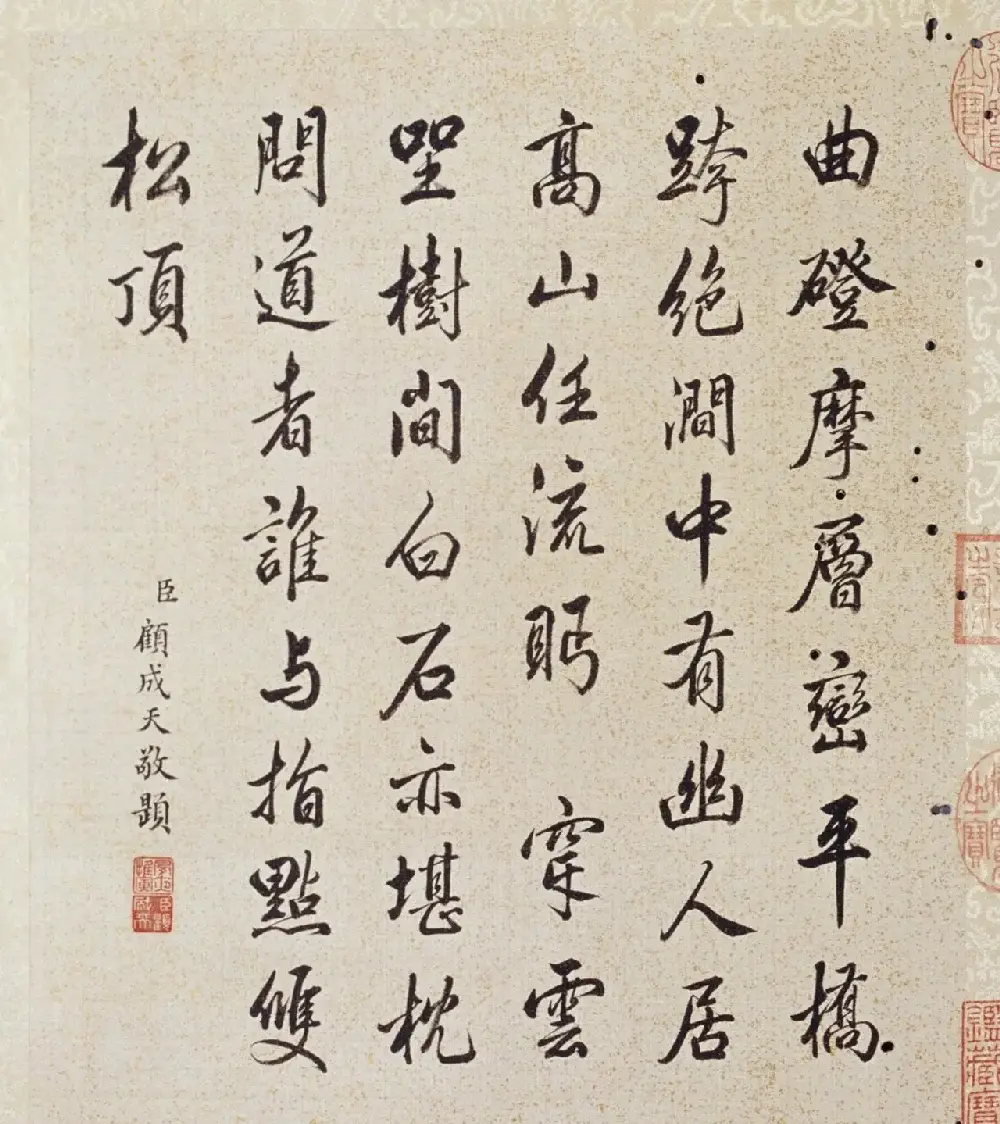 曲磴摩層巒平橋
跨絶澗中有幽人居
高山任流眄 穿雲
坐樹間白石亦堪枕
問道者誰与指點雙
松頂
臣顧成天敬題
鑑藏寶